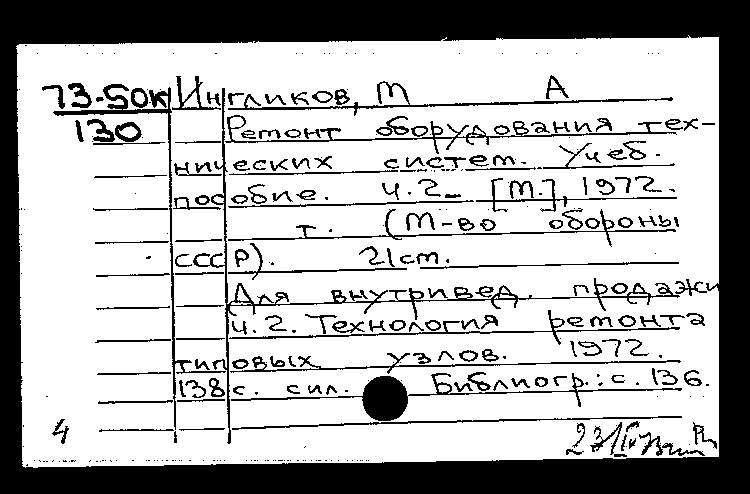 73-50к Ингликов, М А
130 Ремонт оборудования тех-
нических систем. Учеб.
пособие. Ч.2_ [М.], 1972.
т. (М-во обороны
СССР). 21см.
Для внутривед. продажи
ч.2. Технология ремонта
типовых узлов. 1972.
138с. с ил. Библиогр.: с. 136.
4